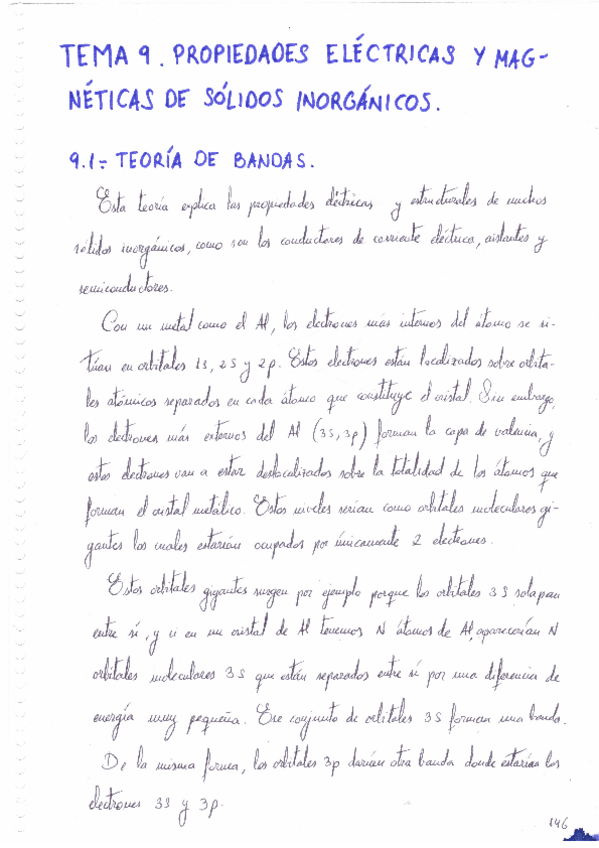 TEMA 9. PROPIEDADES ELÉCTRICAS Y MAG-
NÉTICAS DE SÓLIDOS INORGÁNICOS.
9.1.- TEORÍA DE BANDAS.
Esta teoría explica las propiedades eléctricas y estructurales de muchos
sólidos inorgánicos, como son los conductores de corriente eléctrica, aislantes y
semiconductores.
Con un metal como el Al, los electrones más internos del átomo se si-
túan en orbitales 1s, 2s y 2p. Estos electrones están localizados sobre orbita-
les atómicos separados en cada átomo que constituye el cristal. Sin embargo,
los electrones más externos del Al (3s, 3p) forman la capa de valencia, y
estos electrones van a estar deslocalizados sobre la totalidad de los átomos que
forman el cristal metálico. Estos niveles serían como orbitales moleculares gi-
gantes los cuales estarían ocupados por únicamente 2 electrones.
Estos orbitales gigantes surgen por ejemplo porque los orbitales 3s solapan
entre sí, y si en un cristal de Al tenemos N átomos de Al, aparecerían N
orbitales moleculares 3s que están separados entre sí por una diferencia de
energía muy pequeña. Ese conjunto de orbitales 3s forman una banda.
De la misma forma, los orbitales 3p darían otra banda donde estarían los
electrones 3s y 3p.
146